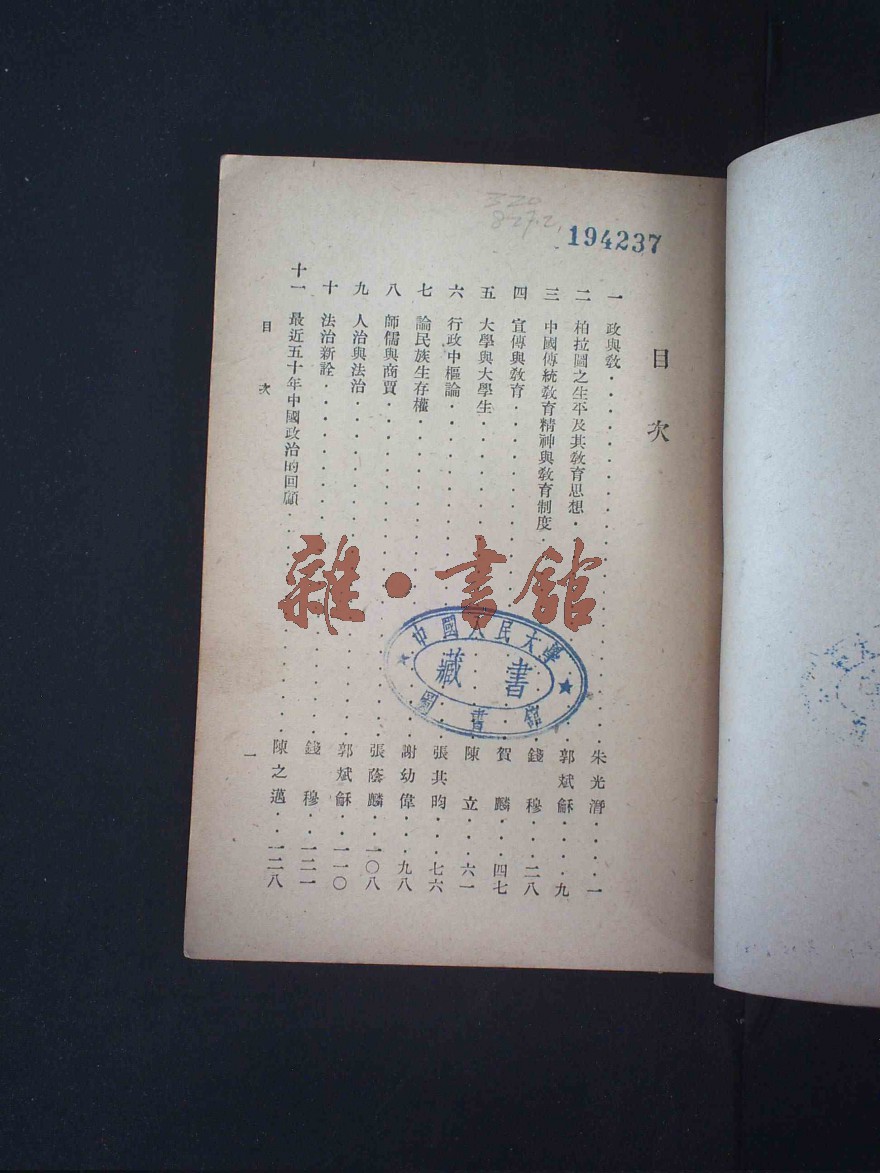 194237
目次
一 政與教・・・・・・・・・・朱光潛・・・・一
二 柏拉圖之生平及其教育思想・・・・・・郭斌龢・・・・九
三 中國傳統教育精神與教育制度・・・・・・錢穆・・二八
四 宣傳與教育・・・・・・・・・・賀麟・・四七
五 大學與大學生・・・・・・・・・・陳立・・六一
六 行政中樞論・・・・・・・・・・張其昀・・七六
七 論民族生存權・・・・・・・・・・謝幼偉・・・九八
八 師儒與商賈・・・・・・・・・・張蔭麟・・一〇八
九 人治與法治・・・・・・・・・・郭斌龢・・一一〇
十 法治新詮・・・・・・・・・・錢穆・・一二一
十一 最近五十年中國政治的回顧・・・・・・陳之邁・・一二八
目次
一
雜・書館
中國人民大學
藏書
圖書館